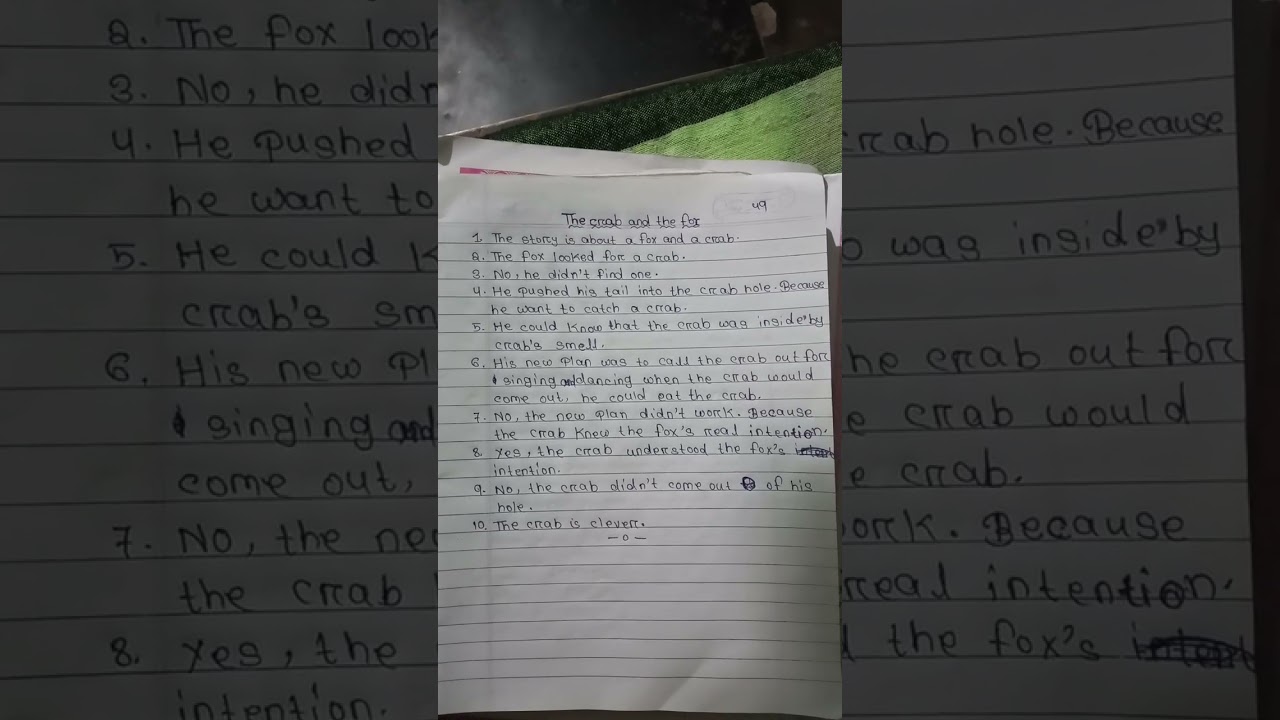 49
The crab and the fox
1. The story is about a fox and a crab.
2. The fox looked for a crab.
3. No, he didn't find one.
4. He pushed his tail into the crab hole. Because
he want to catch a crab.
5. He could know that the crab was inside by
crab's smell.
6. His new plan was to call the crab out for
singing and dancing when the crab would
come out, he could eat the crab.
7. No, the new plan didn't work. Because
the crab knew the fox's real intention.
8. Yes, the crab understood the fox's
intention.
9. No, the crab didn't come out of his
hole.
10. The crab is clever.
—o—